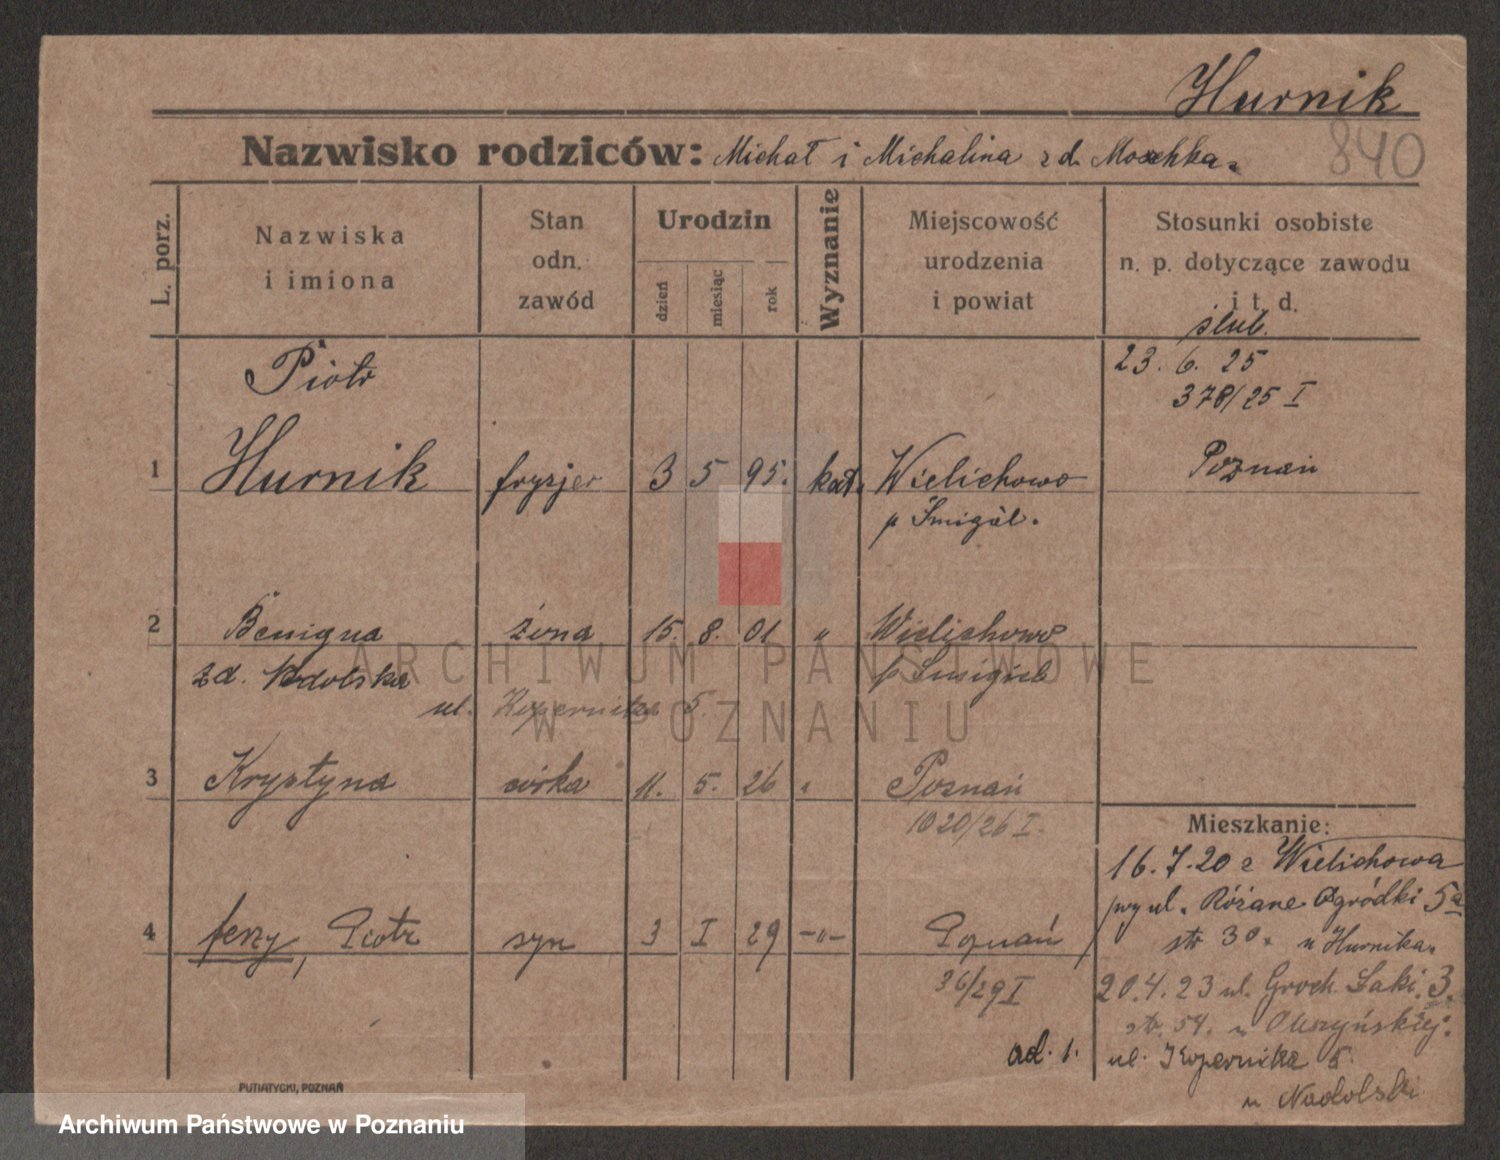 Hurnik
840
Nazwisko rodziców: Michał i Michalina zd. Moschka.
L. porz.
Nazwiska
i imiona
Stan
odn.
zawód
Urodzin
dzień
miesiąc
rok
Wyznanie
Miejscowość
urodzenia
i powiat
Stosunki osobiste
n. p. dotyczące zawodu
i t. d.
ślub.
23. 6. 25
378/25 I
Poznań
Piotr
1 Hurnik fryzjer 3 5 95. kat. Wielichowo
p Śmigiel.
2 Benigna żona 15. 8. 01 " Wielichowo
zd. Nadolska p Śmigiel
ul. Kopernika 5.
3 Krystyna córka 11. 5. 26 " Poznań
1020/26 I.
4 Jerzy, Piotr syn 3 I 29 -"- Poznań
36/29 I
ad. 1.
Mieszkanie:
16.7.20 z Wielichowa
przy ul. Różane Ogródki 5a
str 30. u Hurnika.
20.4.23 ul. Groch. Łąki. 3.
str. 54. u
ul. Kopernika 5.
u Nadolski
PUTIATYCKI, POZNAŃ
ARCHIWUM PAŃSTWOWE
W POZNANIU
Archiwum Państwowe w Poznaniu